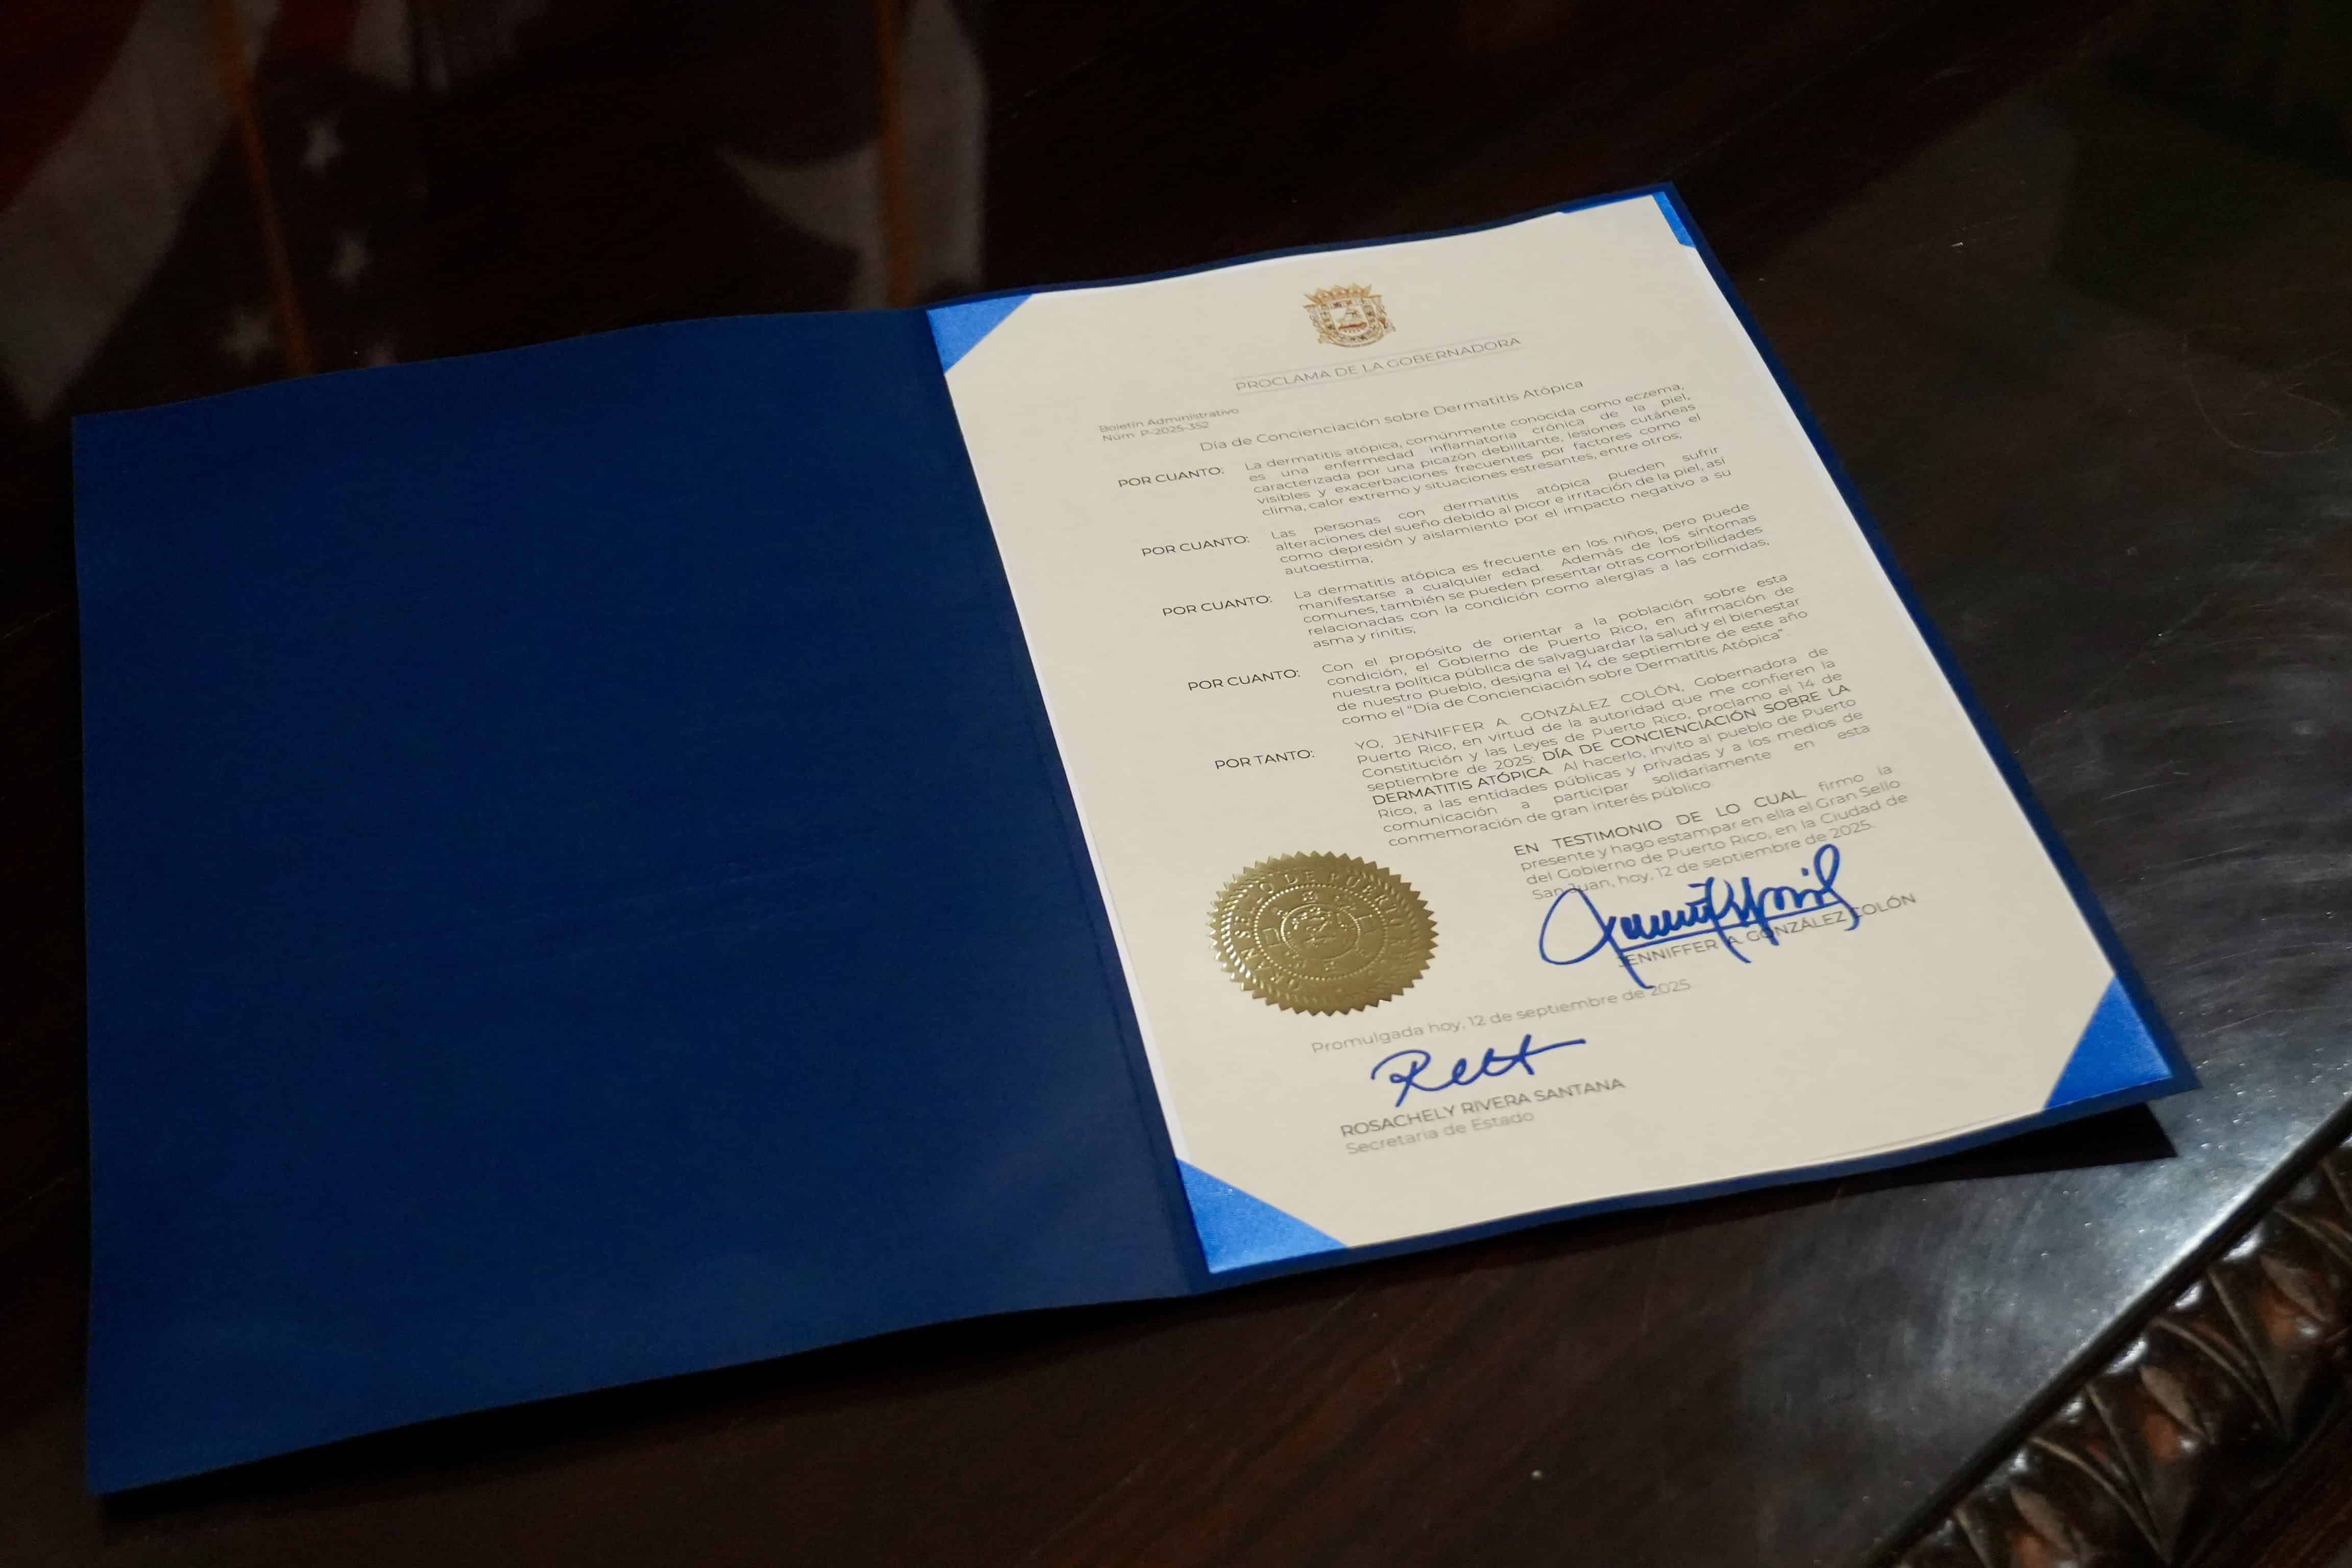 PROCLAMA DE LA GOBERNADORA
Boletín Administrativo
Núm. P-2025-352
Día de Concienciación sobre Dermatitis Atópica
POR CUANTO: La dermatitis atópica, comúnmente conocida como eczema,
es una enfermedad inflamatoria crónica de la piel,
caracterizada por una picazón debilitante, lesiones cutáneas
visibles y exacerbaciones frecuentes por factores como el
clima, calor extremo y situaciones estresantes, entre otros;
POR CUANTO: Las personas con dermatitis atópica pueden sufrir
alteraciones del sueño debido al picor e irritación de la piel, así
como depresión y aislamiento por el impacto negativo a su
autoestima;
POR CUANTO: La dermatitis atópica es frecuente en los niños, pero puede
manifestarse a cualquier edad. Además de los síntomas
comunes, también se pueden presentar otras comorbilidades
relacionadas con la condición como alergias a las comidas,
asma y rinitis;
POR CUANTO: Con el propósito de orientar a la población sobre esta
condición, el Gobierno de Puerto Rico, en afirmación de
nuestra política pública de salvaguardar la salud y el bienestar
de nuestro pueblo, designa el 14 de septiembre de este año
como el "Día de Concienciación sobre Dermatitis Atópica".
POR TANTO: YO, JENNIFFER A. GONZÁLEZ COLÓN, Gobernadora de
Puerto Rico, en virtud de la autoridad que me confieren la
Constitución y las Leyes de Puerto Rico, proclamo el 14 de
septiembre de 2025: DÍA DE CONCIENCIACIÓN SOBRE LA
DERMATITIS ATÓPICA. Al hacerlo, invito al pueblo de Puerto
Rico, a las entidades públicas y privadas y a los medios de
comunicación a participar solidariamente en esta
conmemoración de gran interés público.
EN TESTIMONIO DE LO CUAL, firmo la
presente y hago estampar en ella el Gran Sello
del Gobierno de Puerto Rico, en la Ciudad de
San Juan, hoy, 12 de septiembre de 2025.
JENNIFFER A. GONZÁLEZ COLÓN
Promulgada hoy, 12 de septiembre de 2025.
ROSACHELY RIVERA SANTANA
Secretaria de Estado